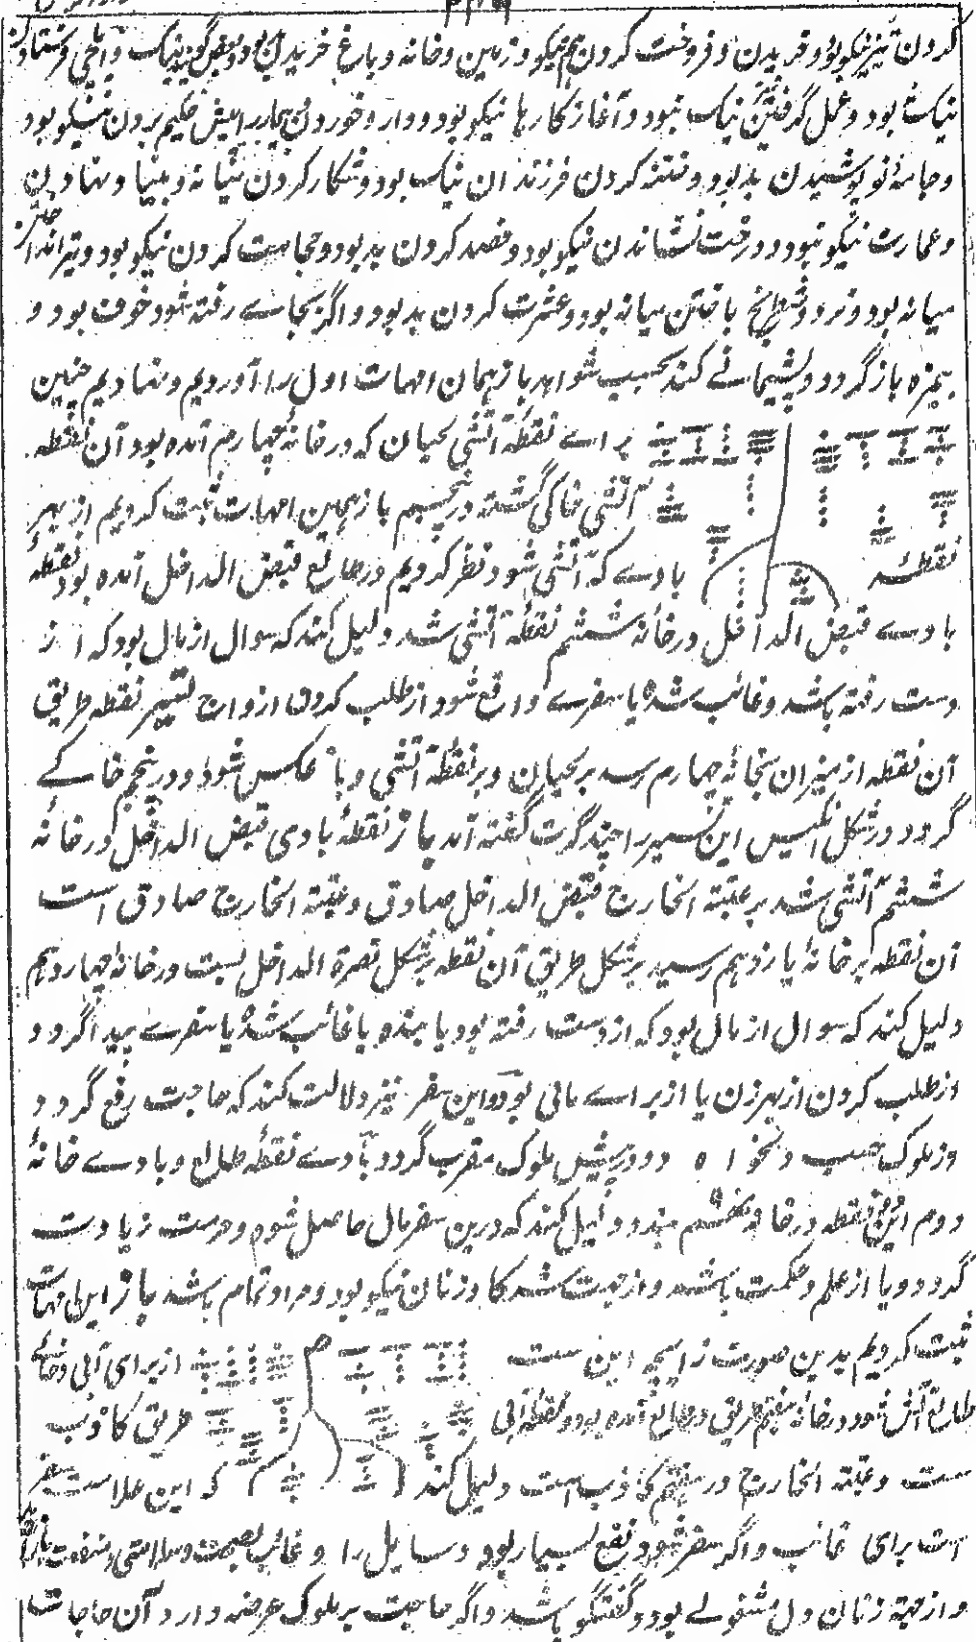 ۲۳۶
کردن نیز نیکو بود و خریدن و فروخت کردن هم نیکو و زمین و خانه و باغ خریدن بود و بعضی گویند نیک و ایلچی فرستادن
نیک بود و عمل گرفتن نیک نبود و آغاز کارها نیکو بود و دارو خوردن و بیمار را پیش حکیم بردن نیکو بود
و جامه نو پوشیدن بد بود و ختنه کردن فرزندان نیک بود و شکار کردن میانه و بنیاد نهادن
و عمارت نیکو نبود و درخت نشاندن نیکو بود و فصد کردن بد بود و حجامت کردن نیکو بود و تیر انداختن
میانه بود و نرد و شطرنج باختن میانه بود و عشرت کردن بد بود و اگر بجاے رفته شود خوف بود و
بهزه باز گردد و پشیمانے کند بحسب شواهد باز همان امهات اول را آوردیم و نهادیم چنین
براے نقطهٔ آتشی لحیان که در خانهٔ چهارم آمده بود آن نقطه
آتشی خاکی گشته در پنجم باز همین امهات ثبت کردیم از بهر
نقطهٔ بادے که آتشی شود نظر کردیم در طالع قبض الداخل آمده بود نقطهٔ
بادے قبض الداخل در خانه ششم نقطهٔ آتشی شد دلیل کند که سوال از مال بود که از
دست رفته باشد و غائب شده یا سفرے واقع شود از طلب کردن ازواج تسییر نقطه طریق
آن نقطه از میزان بخانهٔ چهارم رسد بر لحیان و بر نقطهٔ آتشی و با عکس شود و در پنجم خاکے
گردد در شکل انکیس این تسییر را چند کرت گفته آمد باز نقطهٔ بادی قبض الداخل در خانهٔ
ششم آتشی شد بر عتبة الخارج قبض الداخل صادق و عتبة الخارج صادق است
آن نقطه بر خانهٔ یازدهم رسید بر شکل طریق آن نقطه بر شکل نصرة الداخل بست در خانهٔ چهاردهم
دلیل کند که سوال از مال بود که از دست رفته بود یا بنده یا غائب شدهٔ یا سفرے پیدا گردد
از طلب کردن از بهر زن یا از براے مالی بود و این سفر نیز دلالت کند که حاجت رفع گردد
و ز ملوک حسب دلخواه و در پیش ملوک مقرب گردد بادے نقطهٔ طالع و بادے خانهٔ
دوم این نقطه در خانه هشتم بندد دلیل کند که درین سفر مال حاصل شود و حرمت زیادت
گردد و یا از علم و حکمت باشد و از جهت کار زنان نیکو بود و مراد تمام باشد باز این امهات
ثبت کردیم بدین صورت زایچه این ست از برای آبی و خاکے
طالع آتش شود در خانهٔ هفتم طریق در طالع آمده بود و نقطه آبی طریق کاذب
ست و عتبة الخارج در هفتم کاذب است دلیل کند که این علامت سفر
است برای غائب و اگر سفر شود نفع بسیار بود و سایل را و غائب بصحت و سلامتی و منفعت باز آید
و از جهة زنان دل مشغولے بود و گفتگو باشد و اگر حاجت بر ملوک عرضه دارد آن حاجات